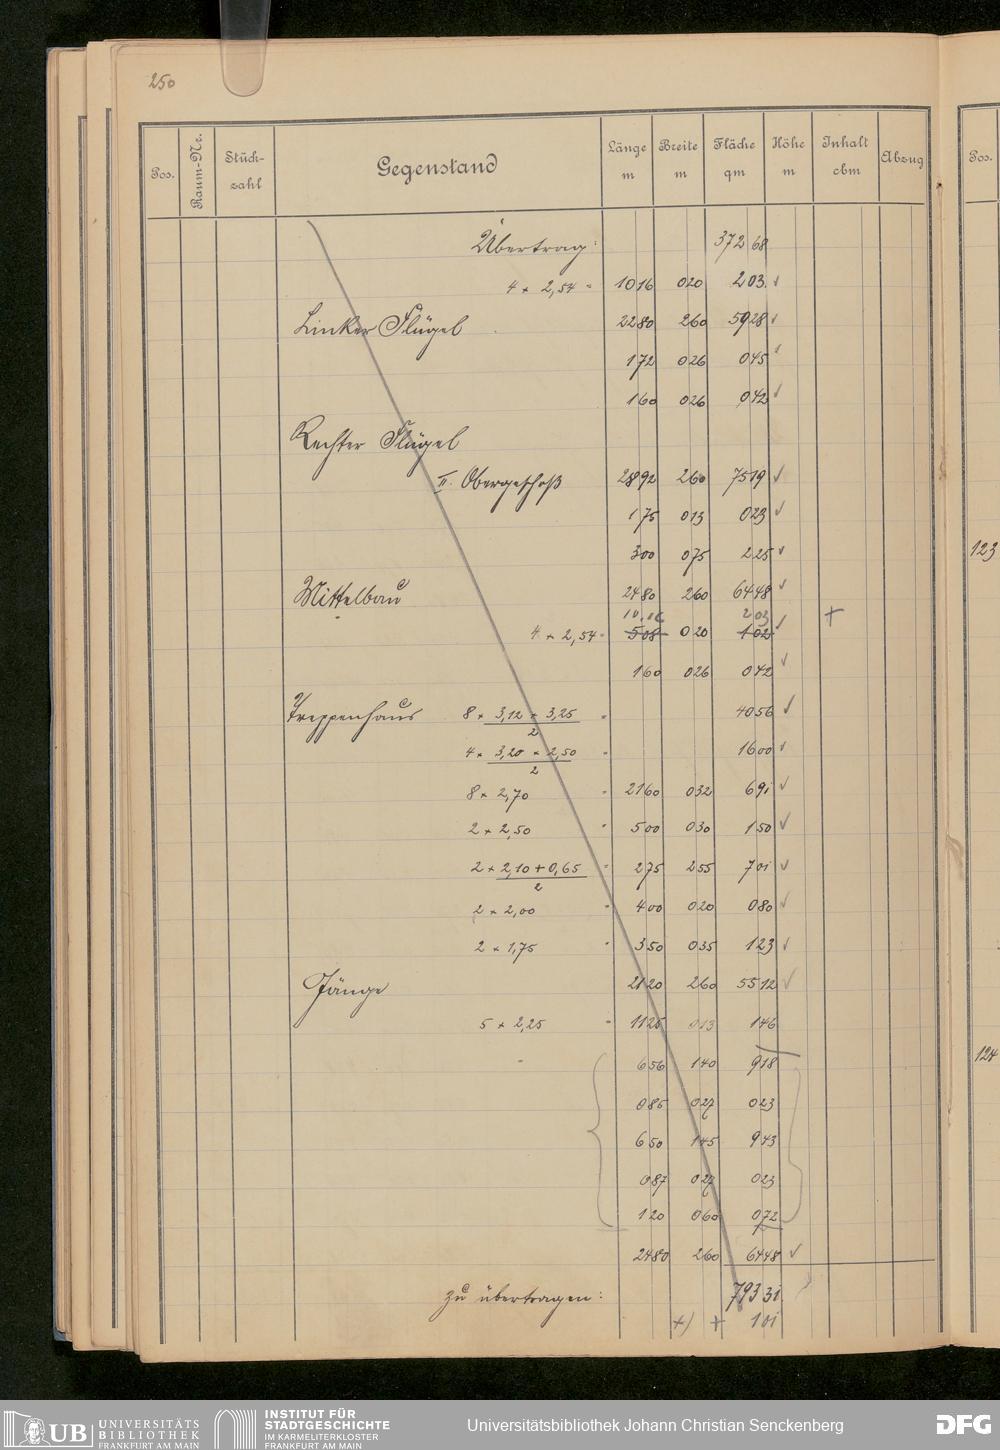 250
Pos. Raum-Nr. Stück-zahl Gegenstand Länge m Breite m Fläche qm Höhe m Inhalt cbm Abzug
Übertrag: 372 68
4 × 2,54 = 10 16 0 20 2 03
Linker Flügel 22 80 2 60 59 28
1 72 0 26 0 45
1 60 0 26 0 42
Rechter Flügel
II. Obergeschoß 28 92 2 60 75 19
1 75 0 13 0 23
3 00 0 75 2 25
Mittelbau 24 80 2 60 64 48
10.16 2 03 +
4 × 2,54 = 5 08 0 20 1 02
1 60 0 26 0 42
Treppenhaus 8 × 3,12 + 3,25 / 2 = 40 56
4 × 3,20 × 2,50 / 2 = 16 00
8 × 2,70 = 21 60 0 32 6 91
2 × 2,50 = 5 00 0 30 1 50
2 × 2,10 + 0,65 / 2 = 2 75 2 55 7 01
2 × 2,00 = 4 00 0 20 0 80
2 × 1,75 = 3 50 0 35 1 23
Gänge 21 20 2 60 55 12
5 × 2,25 = 11 25 0 13 1 46
6 56 1 40 9 18
0 85 0 27 0 23
6 50 1 45 9 43
0 87 0 27 0 23
1 20 0 60 0 72
24 80 2 60 64 48
zu übertragen: 793 31
+) + 1 01
Pos.
123
124
UB UNIVERSITÄTS BIBLIOTHEK FRANKFURT AM MAIN
INSTITUT FÜR STADTGESCHICHTE IM KARMELITERKLOSTER FRANKFURT AM MAIN
Universitätsbibliothek Johann Christian Senckenberg
DFG